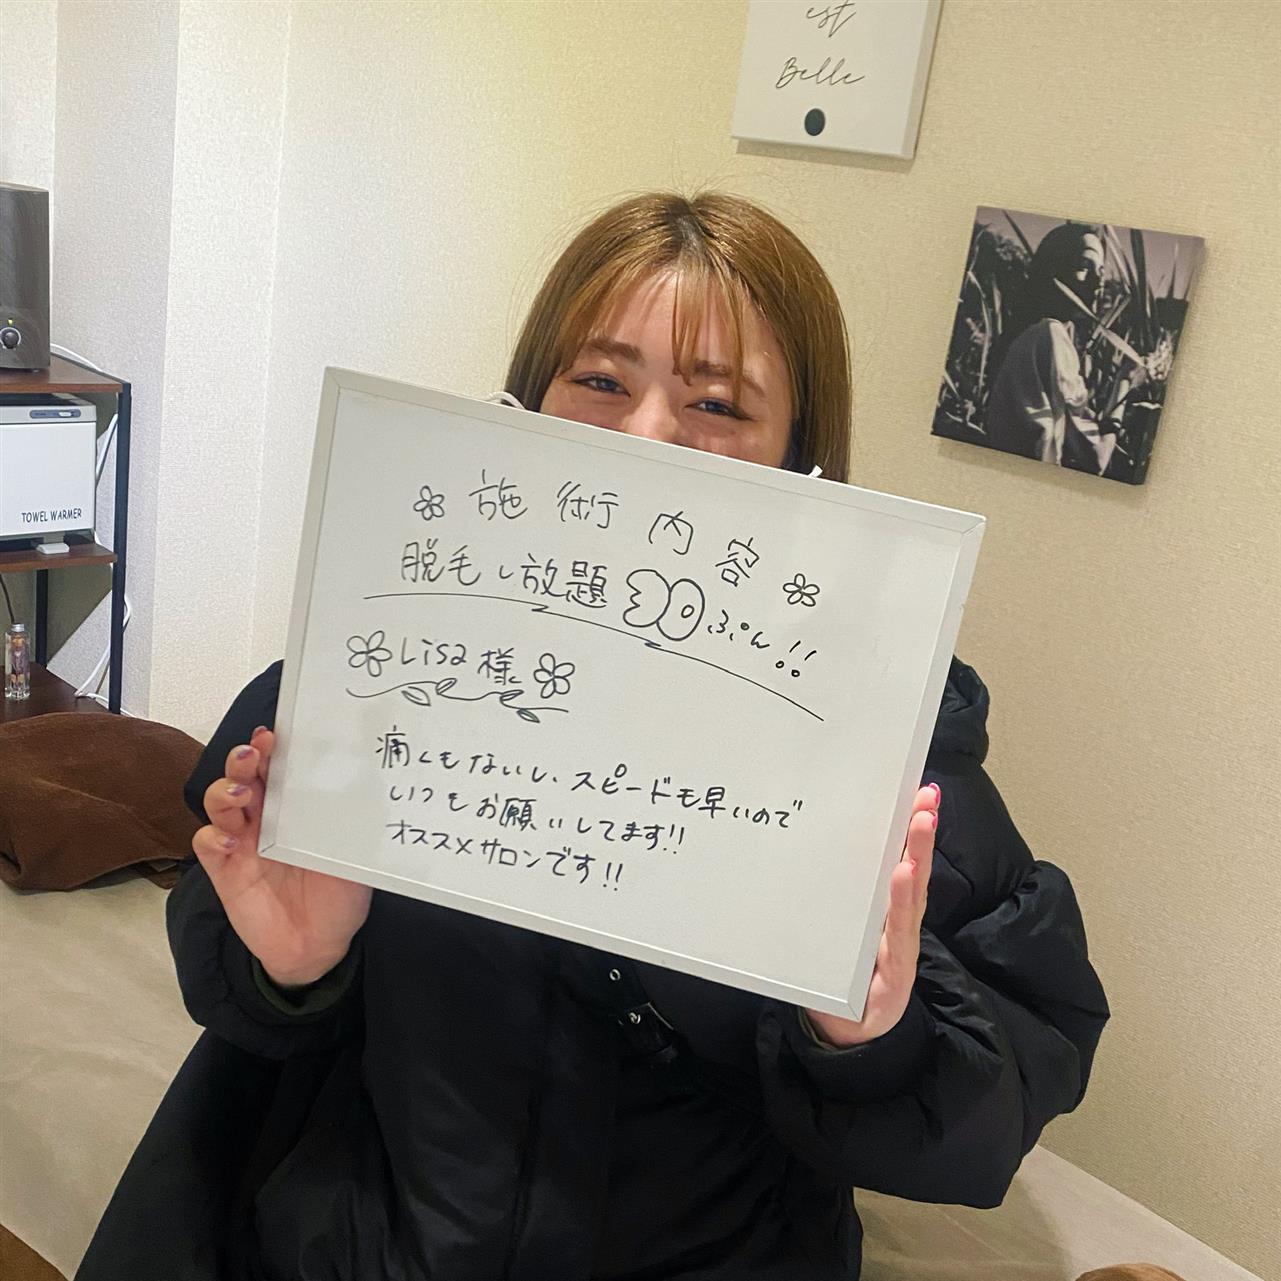 est
Belle
TOWEL WARMER
施術内容
脱毛し放題30ぷん!!
Lisa様
痛くもないし、スピードも早いので
いつもお願いしてます!!
オススメサロンです!!